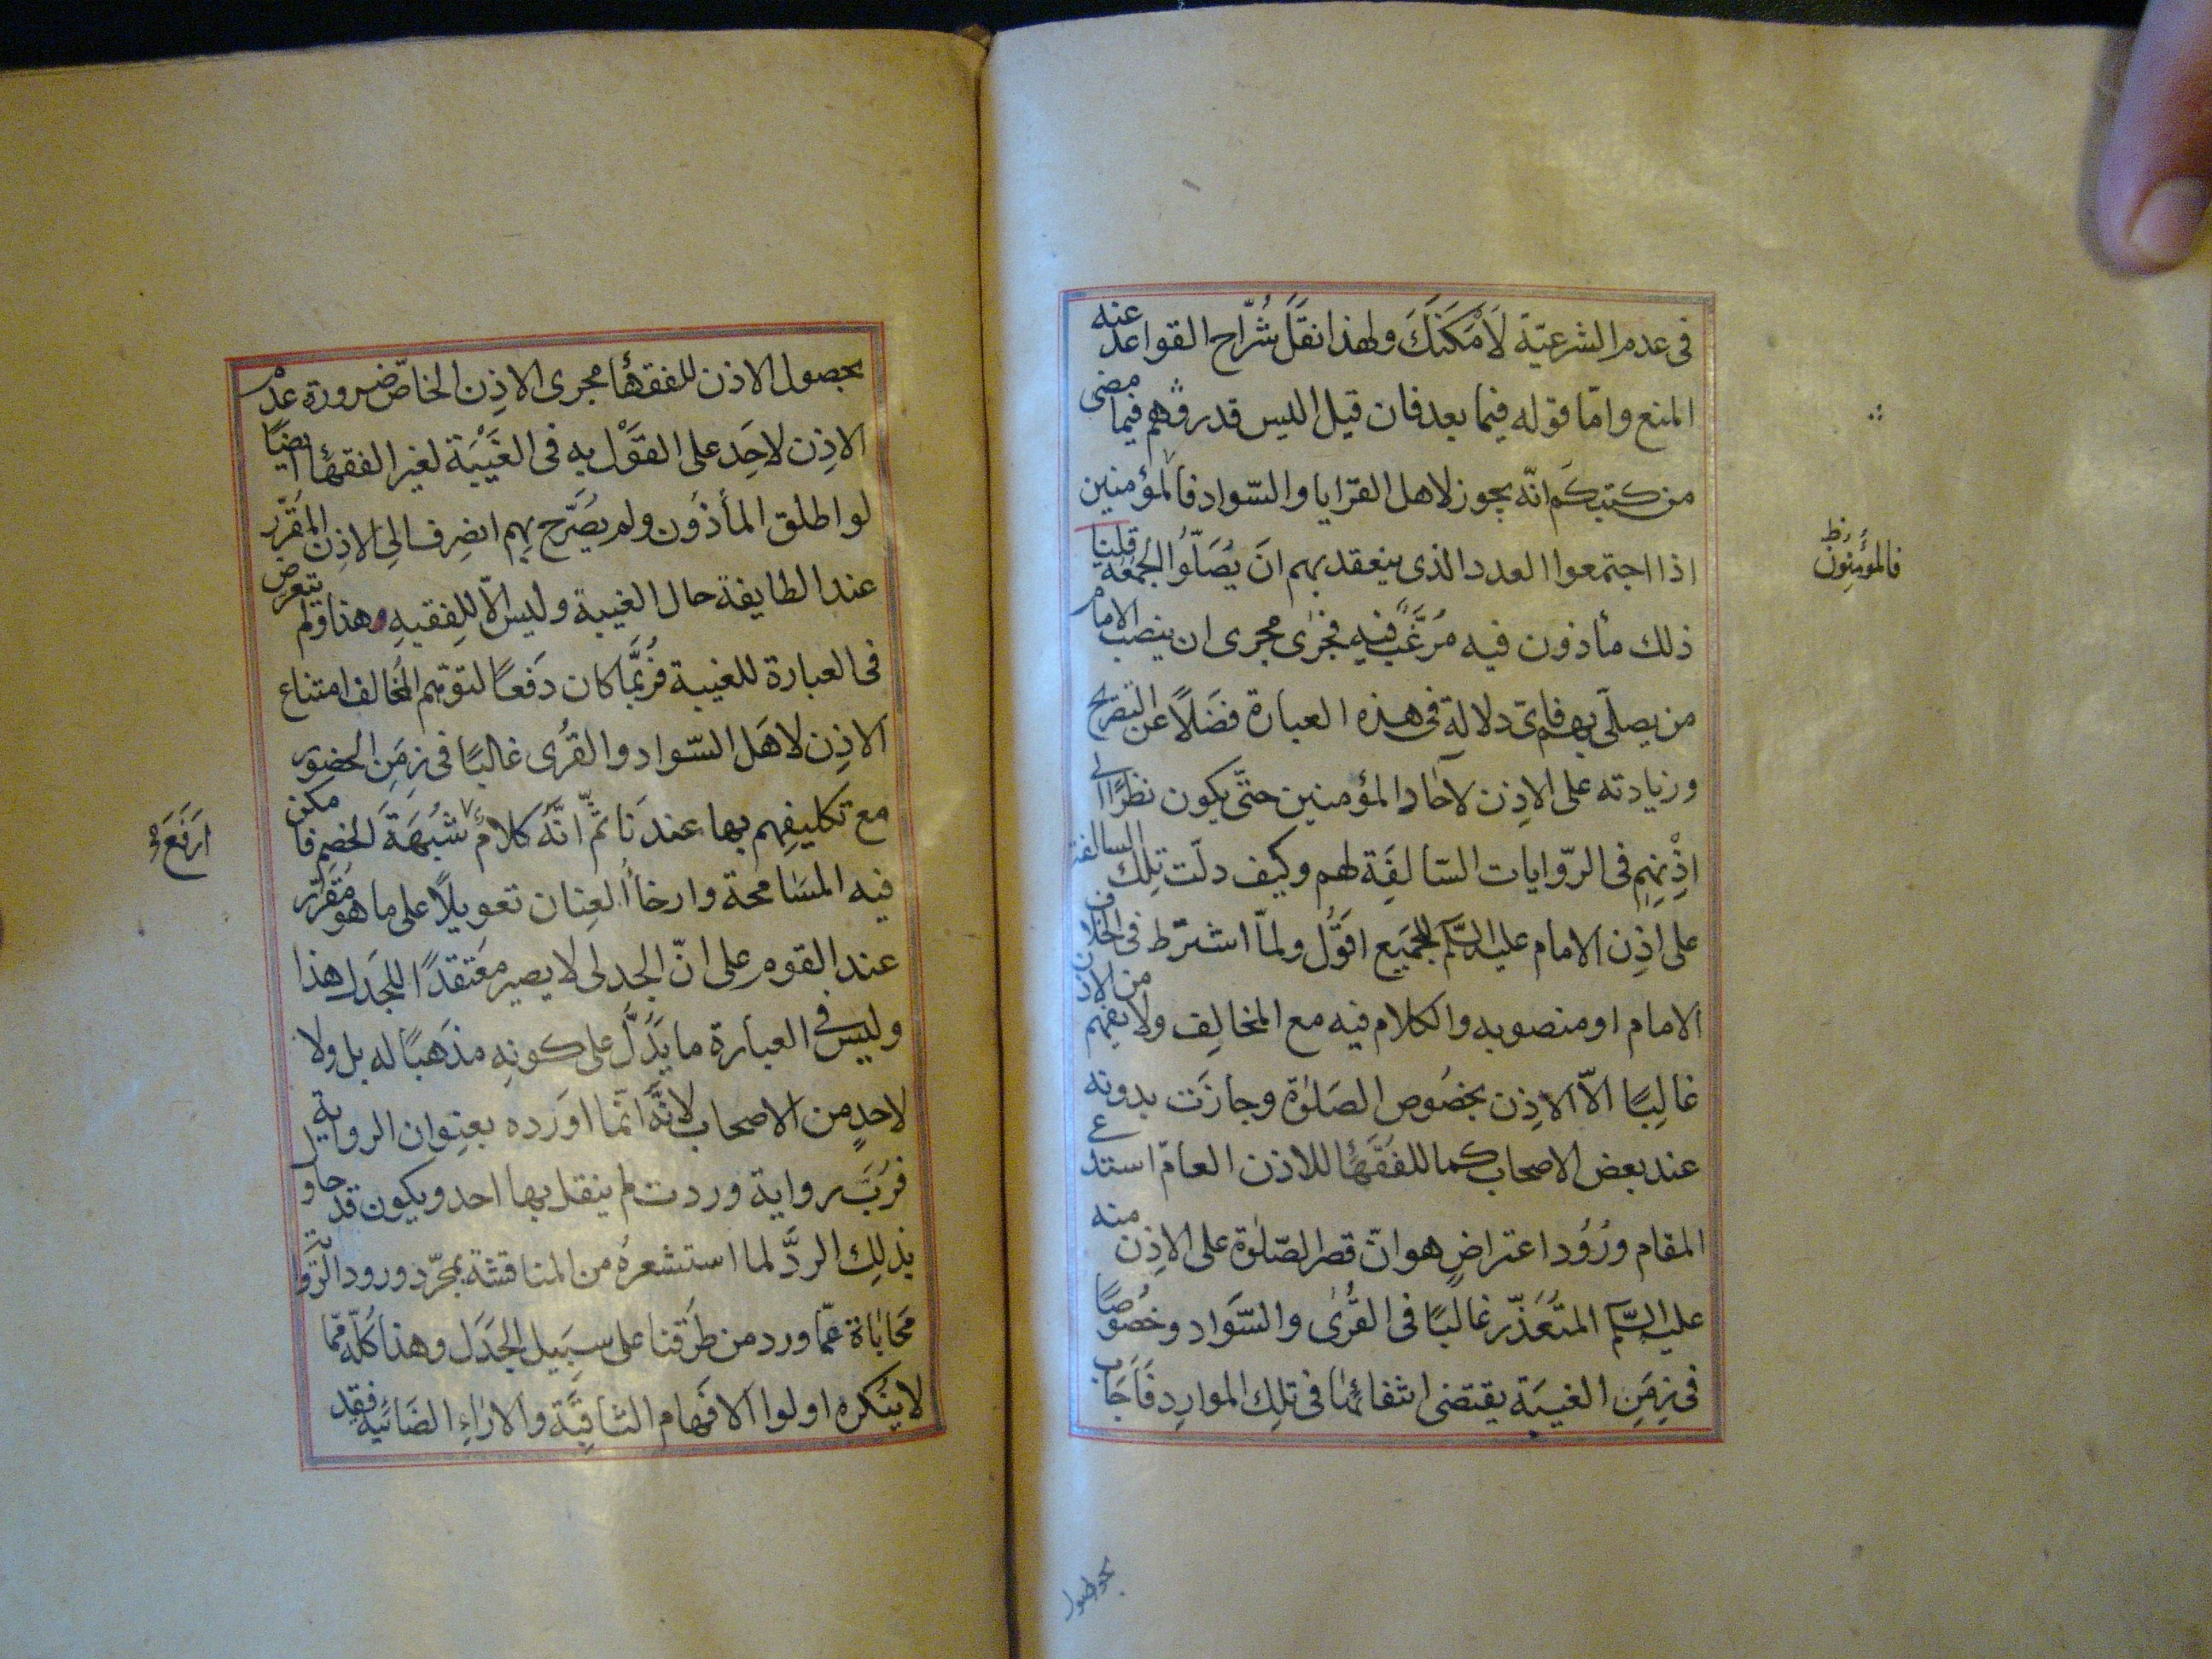 فى عدم الشرعيّة لأمكنك ولهذا نقل شُرّاح القواعد عنه
المنع وامّا قوله فيما بعد فان قيل اليس قد رويتم فيما مضى
من كتبكم انّه يجوز لاهل القرايا والسّواد فالمؤمنين
اذا اجتمعوا العدد الذى ينعقد بهم ان يُصَلّوا الجمعة قلنا
ذلك مأذون فيه مُرَغَّب فيه فجرى مجرى ان ينصب الامام
من يصلّى بهم فاىّ دلالة فى هذه العبارة فضلًا عن التصريح
وزيادته على الاذن لآحاد المؤمنين حتّى يكون نظرًا الى
اذنهم فى الرّوايات السّالفة لهم وكيف دلّت تلك السالفة
على اذن الامام عليه السّلم للجميع اقول ولمّا اشترط فى الخلاف
الامام او منصوبه والكلام فيه مع المخالف ولا يفهم من الاذن
غالبًا الّا الاذن بخصُوص الصَلوٰة وجازت بدونه
عند بعض الاصحاب كما للفقهاء للاذن العامّ استدعى
المقام ورُود اعتراضٍ هو انّ قصر الصّلوٰة على الاذن منه
عليه السّلم المتعذّر غالبًا فى القُرٰى والسّواد وخصُوصًا
فى زمن الغيبَة يقتضى انتفائها فى تلك الموارد فاجاب
فالمؤمنون ظ
بحصول
بحصول الاذن للفقهاء مجرى الاذن الخاصّ ضرورة عدم
الاذن لاحد على القول به فى الغَيْبَة لغير الفقهاء ايضًا
لو اطلق المأذون ولم يصَرّح بهم انصرف الى الاذن المقرّر
عند الطايفة حال الغيبة وليس الّا للفقيه وهذا ولم يتعرض
فى العبارة للغيبة فرُبَّما كان دَفعًا لتوهّم المُخالف امتناع
الاذن لاهل السّواد والقُرى غالبًا فى زمَن الحضور
مع تكليفهم بها عندنا ثمّ انّه كلامٌ شبُهَة الخصم فامكن
فيه المسَامحة وارخاءُ العنان تعويلًا على ما هو مُقَرّر
عند القوم على انّ الجدلى لا يصير معتقدًا للجَدل هذا
وليس فى العبارة ما يدُلّ على كونه مذهبًا له بل ولا
لاحدٍ من الاصحاب لانّه انّما اورده بعنوان الرواية
فرُبّ رواية وردت لم ينقل بها احد ويكون قد حاول
بذلك الردَّ لما استشعره من المناقشة بمجرّد ورود الرّواية
محَابَاة عمّا ورد من طرقنا على سبيل الجدَل وهذا كلّه ممّا
لا ينكره اولوا الافهام الثاقبَّة والاراء الصَائبة فقد